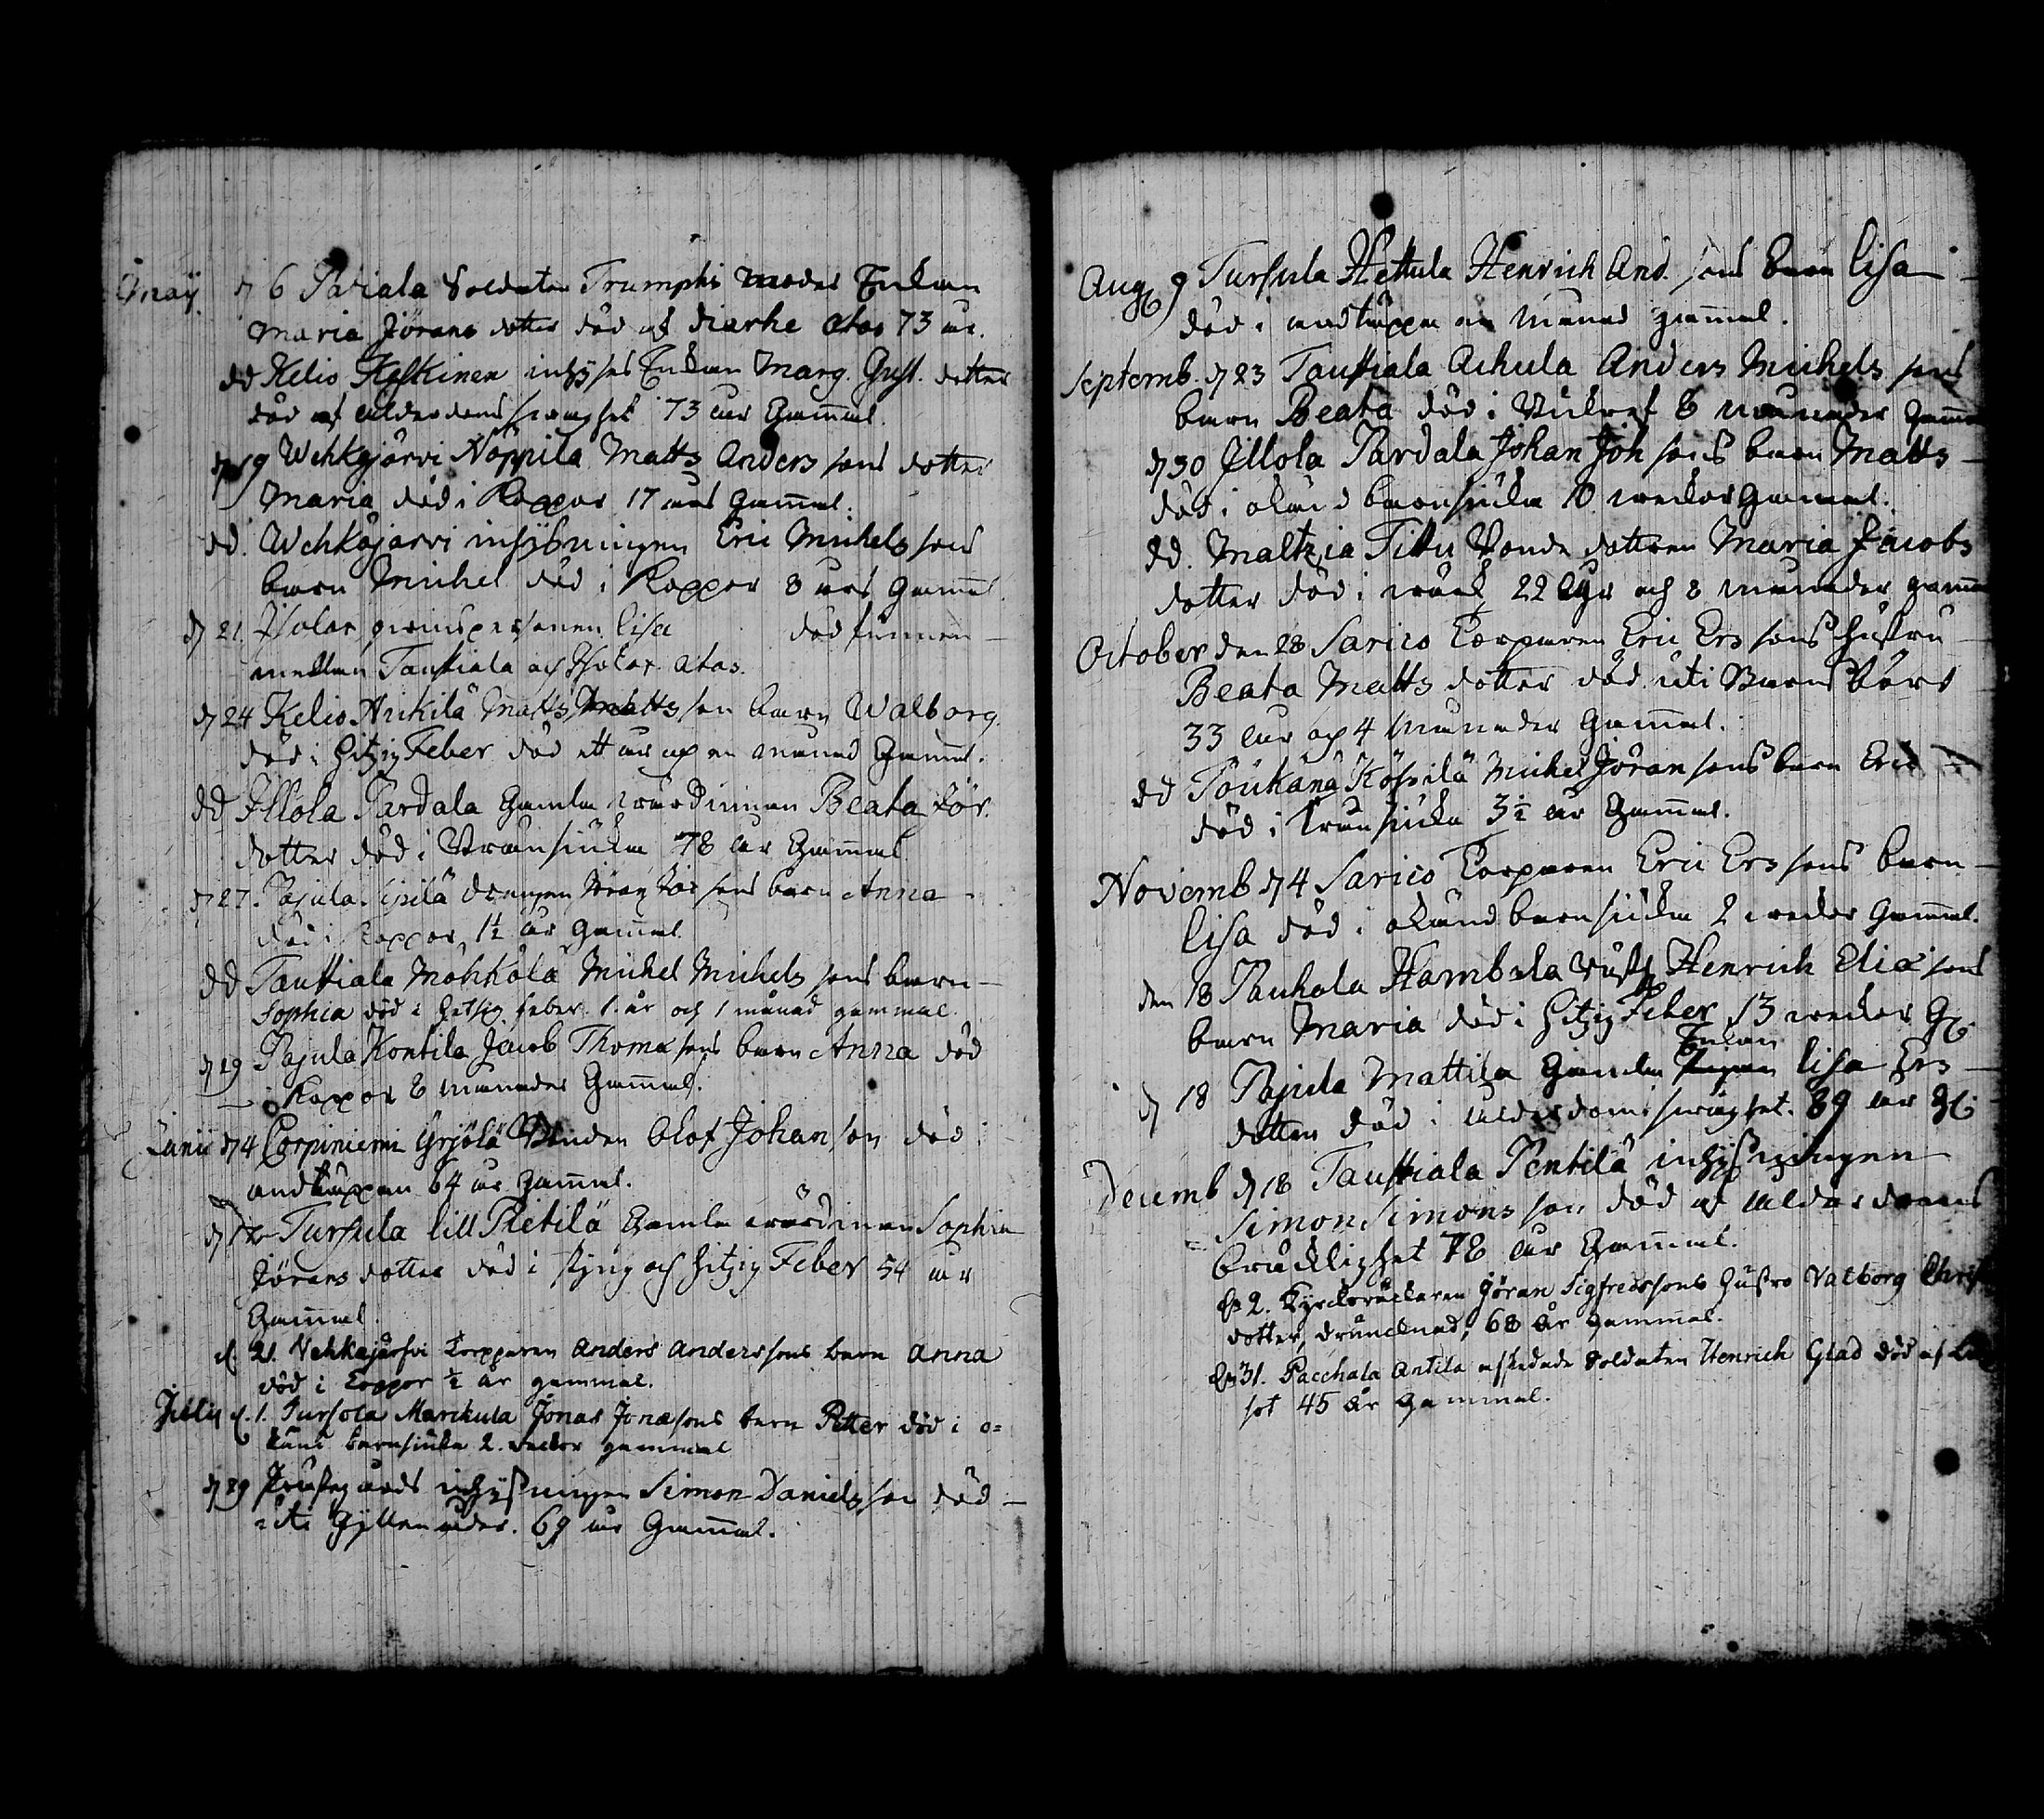 May d 6 Pakiala Soldaten Trumphs moder Enkan
Maria Jörans dotter död af diarhe ætas 73 år.
dd Kelio Keskinen inhyses Enkan Marg. Gust. dotter
död af ålderdoms swaghet 73 åhr Gam̅al.
d 19 Wehkajärvi Nappila Matts Anders sons dotter
Maria död i Koppor 17 åhrs Gam̅al.
dd. Wehkajärvi inhysningen Eric Michels sons
barn Michel död i Koppor 8 åhrs Gam̅al.
d 21. Lisa död funnen
mellan Tauttiala och ætas.
d 24 Kelio Nickilä Matts Matts son barn Walborg
död i hitzig Feber död ett åhr och en månad Gam̅al.
dd Illola Pardala Gamla wärdinnan Beata Jör.
dotter död i Bränsjuka 78 åhr Gam̅al
d 27. Pajula Sipilä drängen Jöran Jör sons barn Anna
död i Koppor 1½ åhr Gam̅al.
dd Tauttiala Mohkala Michel Michels sons barn
Sophia död i Hetsig feber 1. år och 1 månad gammal.
d 29 Pajula Kontila Jacob Thomæ sons barn Anna död
i Koppor 8 månader Gam̅al.
Junii d 4 Corpiniemi Yrjölä Bonden Olof Johan son död i
andtäppan 64 år Gam̅al.
d Tursula lill Pietilä Gamla wärdinnan Sophia
Jörans dotter död i styng och hitzig Feber 54 åhr
Gam̅al.
d. 21. Vehkajärfvi Torpparen Anders Anderssons barn Anna
död i Koppor ½ år gammal.
July d. 1. Tursola Marckula Jonas Jonæsons barn Petter död i o=
känd barnsiuka 2. veckor gammal
d 29 Prästegårds inhysningen Simon Daniels son död
uti Gyllenåder. 69 åhr Gam̅al.
Aug 9 Tursula Hettula Henrich And. sons barn Lisa
död i andtäppa en Månad gam̅al.
Septemb. d 23 Tauttiala Ackula Anders Michels sons
barn Beata död i 8 månader Gam̅al
d 30 Illola Pardala Johan Joh sons barn Matts
död i okänd barnsiuka 10 weckor Gam̅al.
dd. Maltzia Tittu Bonde dottren Maria Jacobs
dotter död i 22 åhr och 8 månader gam̅al
October den 28 Sarico Torparen Eric Ers sons hustru
Beata Matts dotter död uti Barns börd
33 åhr och 4 Månader Gam̅al.
dd Töukänä Köpsilä Michel Jöran sons barn Eric
död i bränsiuka 3½ åhr Gam̅al.
Novemb d 4 Sarico Torparen Eric Ers sons barn
Lisa död i okänd barnsiuka 2 weckor Gam̅al.
den 18 Pauhola Hambula Henrich Eliæ sons
barn Maria död i hitzig Feber 13 weckor G.
Enkan
d 18 Pajula Mattila Gamla Lisa Ers
dotter död i ålderdoms swaghet. 89 åhr G.
Decemb d 18 Tauttiala Pentilä inhysningen
Simon Simons son död af ålderdoms
bräcklighet 78 åhr Gam̅al.
2. Kyrckowäckaren Jöran Sigfredssons hustro Valborg Christ
dotter, drunknad, 68 år gammal.
31. Pacchala Antila afskedade Soldaten Henrich Glad död af
sot 45 år gammal.